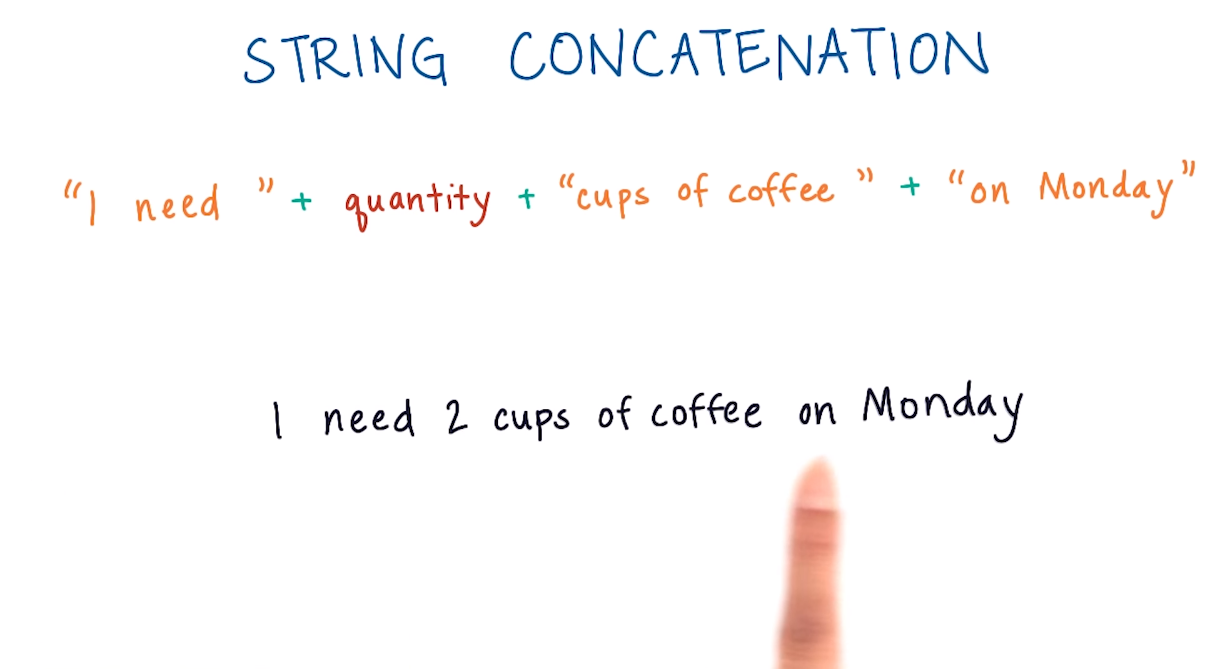 STRING CONCATENATION
“I need ” + quantity + “cups of coffee ” + “on Monday”
I need 2 cups of coffee on Monday